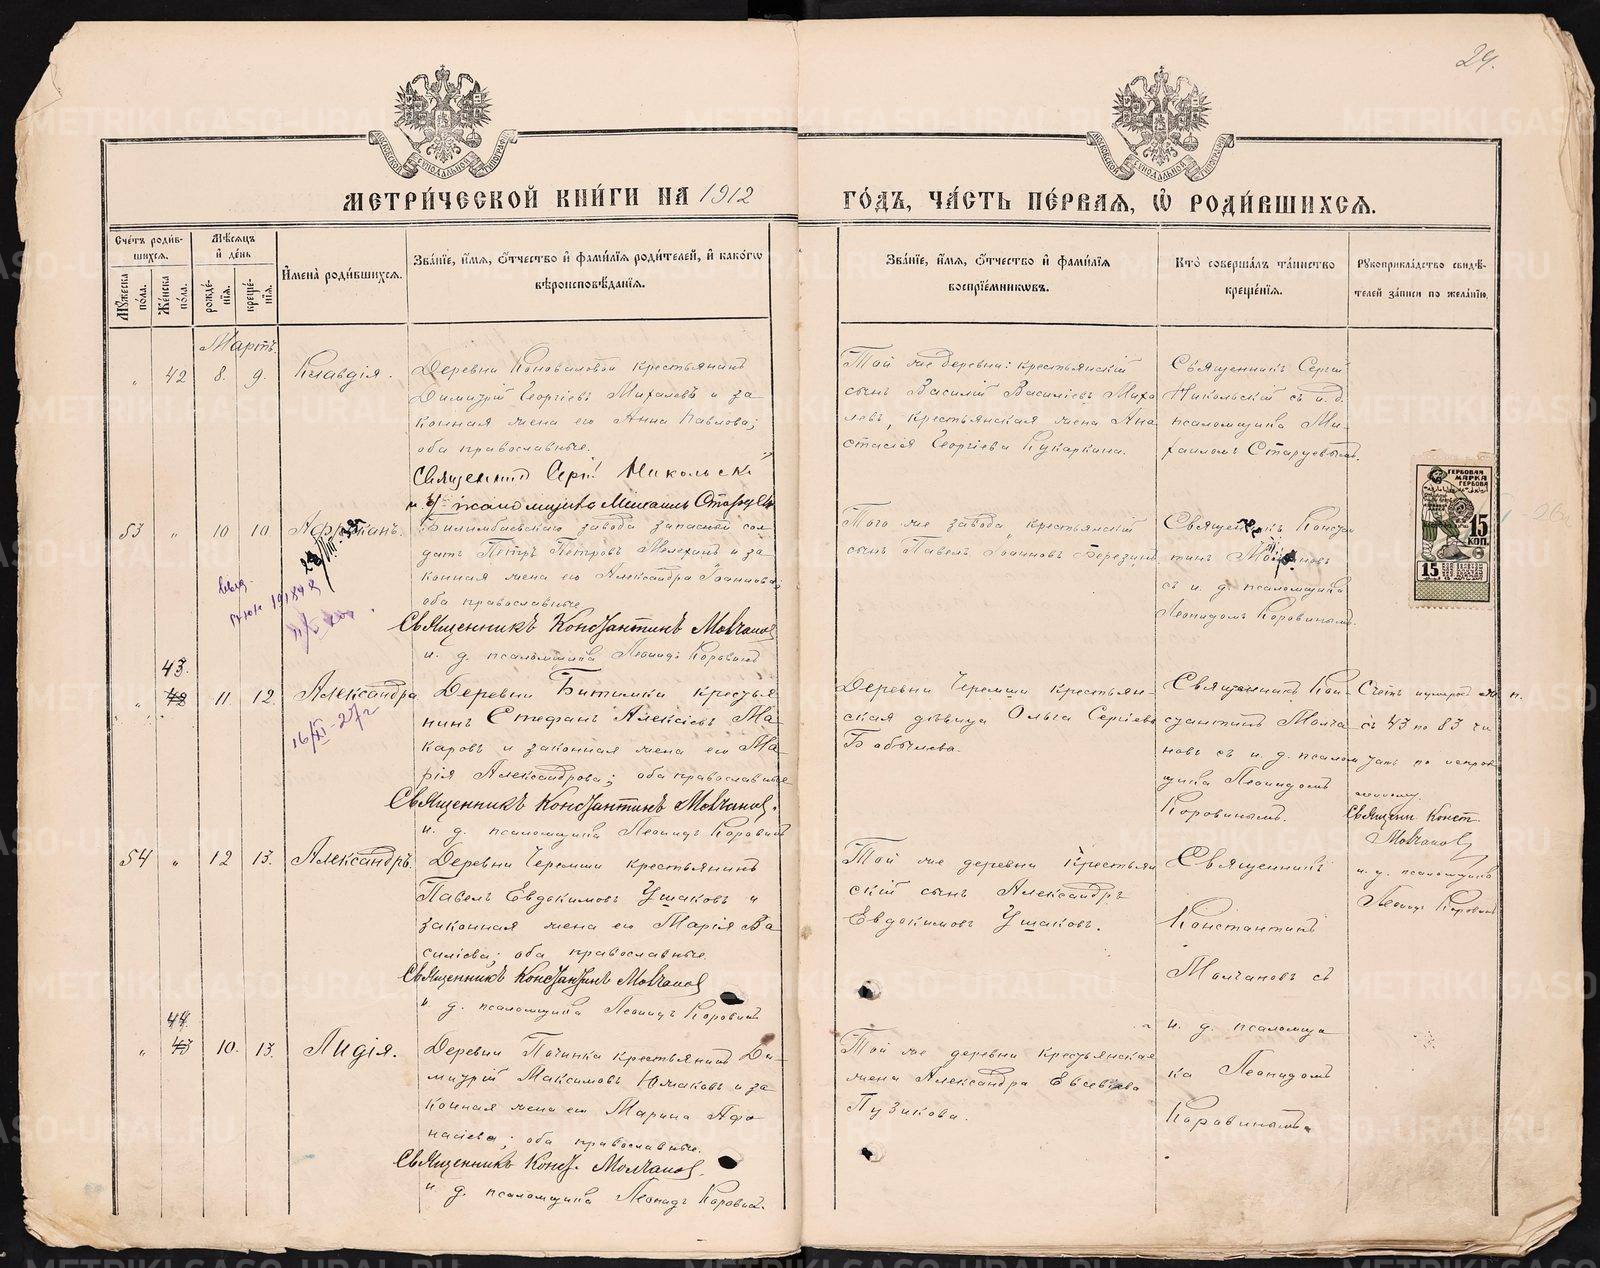 24.
МОСКОВСКОЙ СѴНОДАЛЬНОЙ ТИПОГРАФІИ
МОСКОВСКОЙ СѴНОДАЛЬНОЙ ТИПОГРАФІИ
МЕТРИ́ЧЕСКОЙ КНИ́ГИ НА 1912
ГО́ДЪ, ЧА́СТЬ ПЕ́РВАѦ, Ѡ҆ РОДИ́ВШИХСѦ.
Сче́тъ роди́в-
шихсѧ.
Мꙋ́жеска по́ла.
Же́нска по́ла.
Мѣ́сѧцъ
и҆ де́нь
рожде́-
нїѧ.
креще́-
нїѧ.
И҆мена̀ роди́вшихсѧ.
Зва́нїе, и҆́мѧ, ѻ҆́тчество и҆ фами́лїѧ роди́телей, и҆ како́гѡ
вѣроисповѣ́данїѧ.
Зва́нїе, и҆́мѧ, ѻ҆́тчество и҆ фами́лїѧ
воспрїе́мникѡвъ.
Кто̀ соверша́лъ та́инство
креще́нїѧ.
Рꙋкоприкла́дство свидѣ́-
телей за́писи по жела́нїю.
Мартъ.
" 42 8. 9. Клавдія.
Деревни Коноваловой крестьянинъ
Димитрій Георгіевъ Михалевъ и за
конная жена его Анна Павлова;
оба православные.
Священникъ Сергій Никольскій
и. д. псаломщика Михаилъ Старцевъ
Той же деревни крестьянскій
сынъ Василій Василіевъ Миха
левъ, крестьянская жена Ана
стасія Георгіева Кукаркина.
Священникъ Сергій
Никольскій съ и. д.
псаломщика Ми-
хаиломъ Старцевымъ.
53 " 10 10 Африканъ.
Билимбаевскаго завода запасной сол
датъ Петръ Петровъ Мелехинъ и за
конная жена его Александра Іоаннова
оба православные
Священникъ Константинъ Молчановъ
и. д. псаломщика Леонидъ Коровинъ
Того же завода крестьянскій
сынъ Павелъ Іоанновъ Березинъ
Священникъ Констан
тинъ Молчановъ
съ и. д. псаломщика
Леонидомъ Коровинымъ.
ГЕРБОВАЯ
МАРКА
ГЕРБОВА
15
КОП.
15
43.
" 42 11. 12. Александра
16/XI-27г
Деревни Битимки крестья
нинъ Стефанъ Алексіевъ Ма
каровъ и законная жена его Ма
рія Александрова; оба православные
Священникъ Константинъ Молчановъ.
и. д. псаломщика Леонидъ Коровинъ
Деревни Черемши крестьян-
ская дѣвица Ольга Сергіева
Бабычева.
Священникъ Кон-
стантинъ Молча
новъ съ и. д. псалом
щика Леонидомъ
Коровинымъ.
съ 43 по 83 чи
тать по исправ
ленному.
Священ. Конст.
Молчановъ
и. д. псаломщика
Леонидъ Коровинъ
54 " 12 13. Александръ.
Деревни Черемши крестьянинъ
Павелъ Евдокимовъ Ушаковъ и
законная жена его Марія Ва
силіева; оба православные.
Священникъ Константинъ Молчановъ
и. д. псаломщика Леонидъ Коровинъ
Той же деревни крестьян
скій сынъ Александръ
Евдокимовъ Ушаковъ.
Священникъ
Константинъ
Молчановъ съ
и. д. псаломщи
ка Леонидомъ
Коровинымъ.
44.
" 43 10. 13. Лидія.
Деревни Починка крестьянинъ Ди-
митрій Максимовъ Юшаковъ и за
конная жена его Марина Афа
насіева; оба православные.
Священникъ Конст. Молчановъ.
и. д. псаломщика Леонидъ Коровинъ.
Той же деревни крестьянская
жена Александра Евсевіева
Пузикова.
METRIKI.GASO-URAL.RU